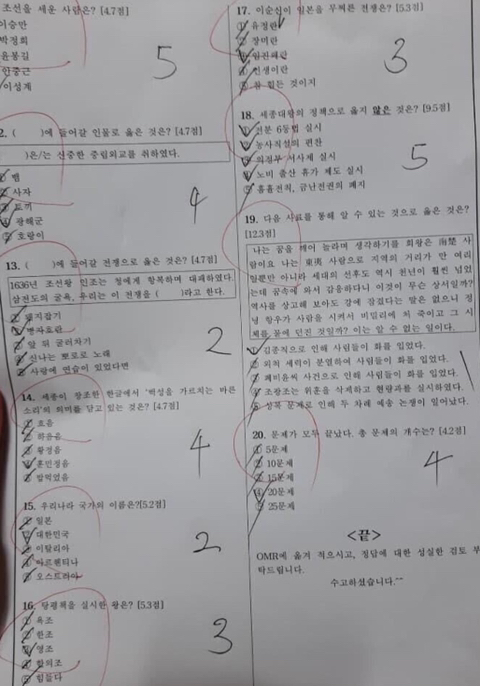 조선을 세운 사람은? [4.7점]
이승만
박정희
윤봉길
안중근
이성계
5
2. ( )에 들어갈 인물로 옳은 것은? [4.7점]
)은/는 신중한 중립외교를 취하였다.
① 뱀
② 사자
③ 토끼
④ 광해군
⑤ 호랑이
4
13. ( )에 들어갈 전쟁으로 옳은 것은? [4.7점]
1636년 조선왕 인조는 청에게 항복하며 대패하였다.
삼전도의 굴욕, 우리는 이 전쟁을 ( )라고 한다.
① 돼지잡기
② 병자호란
③ 앞 뒤 굴러차기
④ 신나는 뽀로로 노래
⑤ 사랑에 연습이 있었다면
2
14. 세종이 창조한 한글에서 '백성을 가르치는 바른
소리'의 의미를 담고 있는 것은? [4.7점]
① 흐음
② 하음음
③ 황정음
④ 훈민정음
⑤ 맙먹었음
4
15. 우리나라 국가의 이름은?[5.2점]
① 일본
② 대한민국
③ 이탈리아
④ 아르헨티나
⑤ 오스트리아
2
16. 탕평책을 실시한 왕은? [5.3점]
① 육조
② 한조
③ 영조
④ 합의조
⑤ 힘들다
3
17. 이순신이 일본을 무찌른 전쟁은? [5.3점]
① 유정란
② 장미란
③ 임진왜란
④ 인생이란
⑤ 참 힘든 것이지
3
18. 세종대왕의 정책으로 옳지 않은 것은? [9.5점]
① 전분 6등법 실시
② 농사직설의 편찬
③ 의정부 서사제 실시
④ 노비 출산 휴가 제도 실시
⑤ 흉흉전직, 금난전권의 폐지
5
19. 다음 사료를 통해 알 수 있는 것으로 옳은 것은?
[12.3점]
나는 꿈을 깨어 놀라며 생각하기를 회왕은 南楚 사
람이요 나는 東夷 사람으로 지역의 거리가 만 여리
일뿐만 아니라 세대의 선후도 역시 천년이 훨씬 넘었
는데 꿈속에 와서 감응하다니 이것이 무슨 상서일까?
역사를 상고해 보아도 강에 잠겼다는 말은 없으니 정
녕 항우가 사람을 시켜서 비밀리에 쳐 죽이고 그 시
체를 물에 던진 것일까? 이는 알 수 없는 일이다.
① 김종직으로 인해 사림들이 화를 입었다.
② 외척 세력이 분열하여 사림들이 화를 입었다.
③ 폐비윤씨 사건으로 인해 사림들이 화를 입었다.
④ 조광조는 위훈을 삭제하고 현량과를 실시하였다.
⑤ 상복 문제로 인해 두 차례 예송 논쟁이 일어났다.
1
20. 문제가 모두 끝났다. 총 문제의 개수는? [4.2점]
① 5문제
② 10문제
③ 15문제
④ 20문제
⑤ 25문제
4
<끝>
OMR에 옮겨 적으시고, 정답에 대한 성실한 검토 부
탁드립니다.
수고하셨습니다.^^